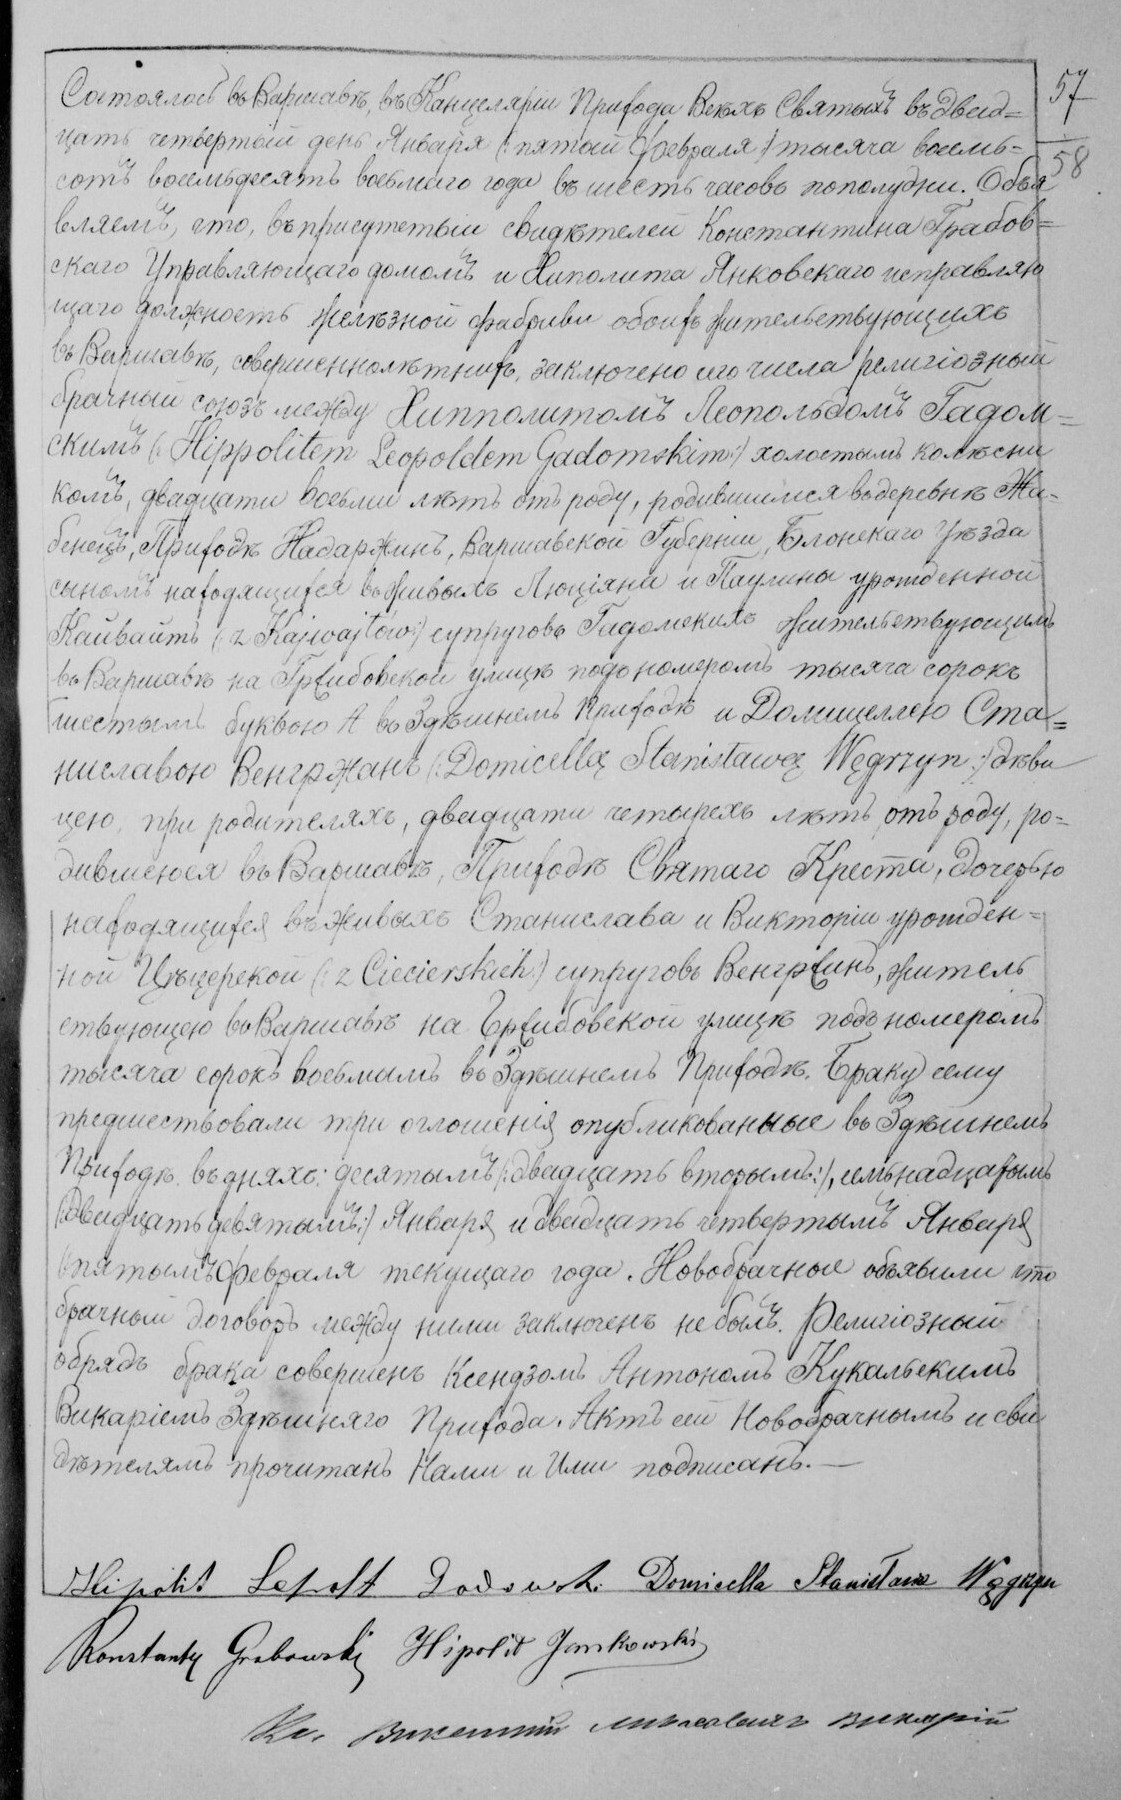 57
58
Состоялось въ Варшавѣ, въ Канцеляріи Прихода Всѣхъ Святыхъ въ двад=
цать четвертый день Января (: пятый Февраля :) тысяча восемь=
сотъ восемьдесятъ восьмаго года въ шесть часовъ пополудни. Объя
вляемъ, что, въ присутствіи свидѣтелей Константина Грабов=
скаго Управляющаго домомъ и Хиполита Янковскаго исправляю
щаго должность желѣзной фабрики обоихъ жительствующихъ
въ Варшавѣ, совершеннолѣтнихъ, заключено сего числа религіозный
брачный союзъ между Хипполитомъ Леопольдомъ Гадом=
скимъ (: Hippolitem Leopoldem Gadomskim :) холостымъ колѣсни
комъ, двадцати восьми лѣтъ отъ роду, родившимся въ деревнѣ Жи-
бенецъ, Приходѣ Надаржинъ, Варшавской Губерніи, Блонскаго Уѣзда
сыномъ находящихся въ живыхъ Люціяна и Паулины урожденной
Кайвайтъ (: z Kajwajtów :) супруговъ Гадомскихъ жительствующимъ
въ Варшавѣ на Гржибовской улицѣ подъ номеромъ тысяча сорокъ
шестымъ буквою А въ Здѣшнемъ Приходѣ и Домицеллею Ста=
ниславою Венгржинъ (: Domicellą Stanisławą Węgrzyn :) дѣви
цею, при родителяхъ, двадцати четырехъ лѣтъ отъ роду, ро=
дившеюся въ Варшавѣ, Приходѣ Святаго Креста, дочерью
находящихся въ живыхъ Станислава и Викторіи урожден=
ной Цѣцерской (: z Ciecierskich :) супруговъ Венгржинъ, житель
ствующею въ Варшавѣ на Гржибовской улицѣ подъ номеромъ
тысяча сорокъ восьмымъ въ Здѣшнемъ Приходѣ. Браку сему
предшествовали три оглошенія опубликованные въ Здѣшнемъ
Приходѣ въ дняхъ: десятымъ (: двадцать вторымъ :), семьнадцатымъ
(: двадцать девятымъ :) Января и двадцать четвертымъ Января
(: пятымъ Февраля текущаго года. Новобрачные объявили что
брачный договоръ между ними заключенъ не былъ. Религіозный
обрядъ брака совершенъ Ксендзомъ Антономъ Кукальскимъ
Викаріемъ Здѣшняго Прихода. Актъ сей Новобрачнымъ и сви
дѣтелямъ прочитанъ Нами и Ими подписанъ.—
Hipolit Domicella Stanisława Węgrzyn
Konstanty Grabowski Hipolit Jankowski
Кс. Викентій викарій